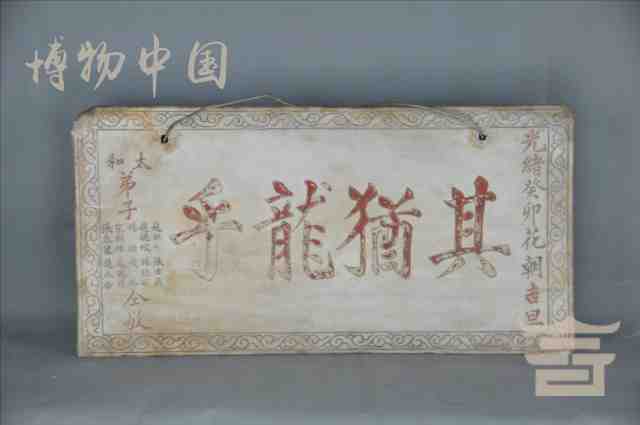 博物中国
光緒癸卯花朝吉旦
其猶龍乎
太和
弟子
仝敬